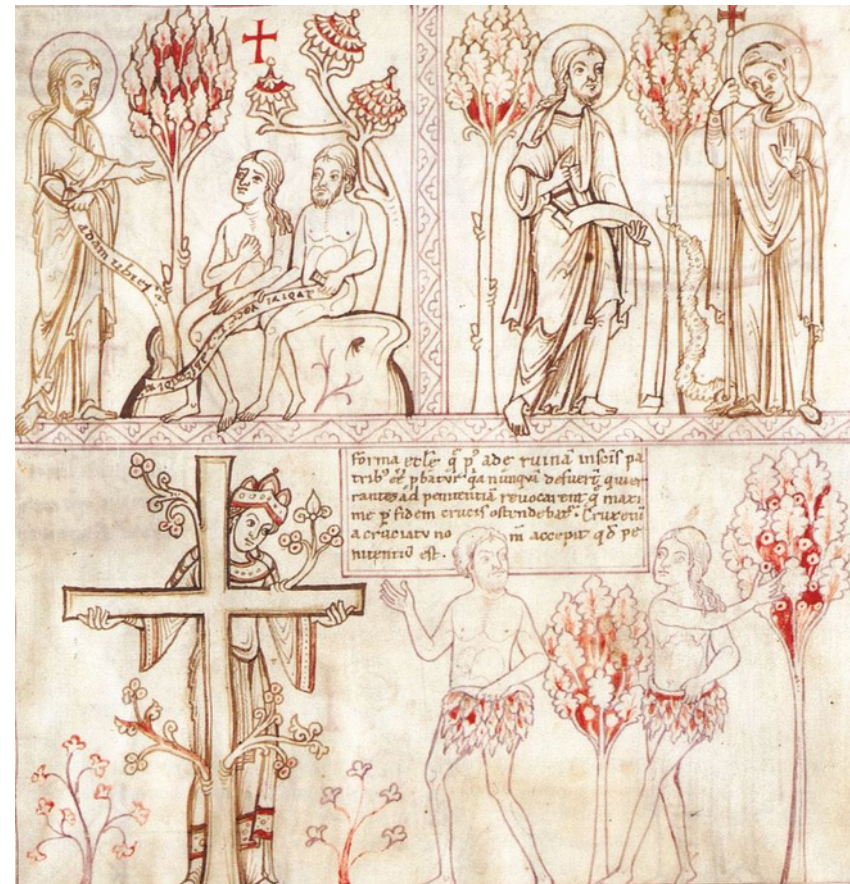 adam
forma eccle q̄ p⁹ ade ruinā in scīs pa
trib⁹ et pbatur qa nunquā defuerūt qui er
rantes ad penitentiā revocarent q̄ maxi
me p fidem crucis ostendebat². Crux enī
a cruciatu no m̄ accepit qd pe
nitentiū est.